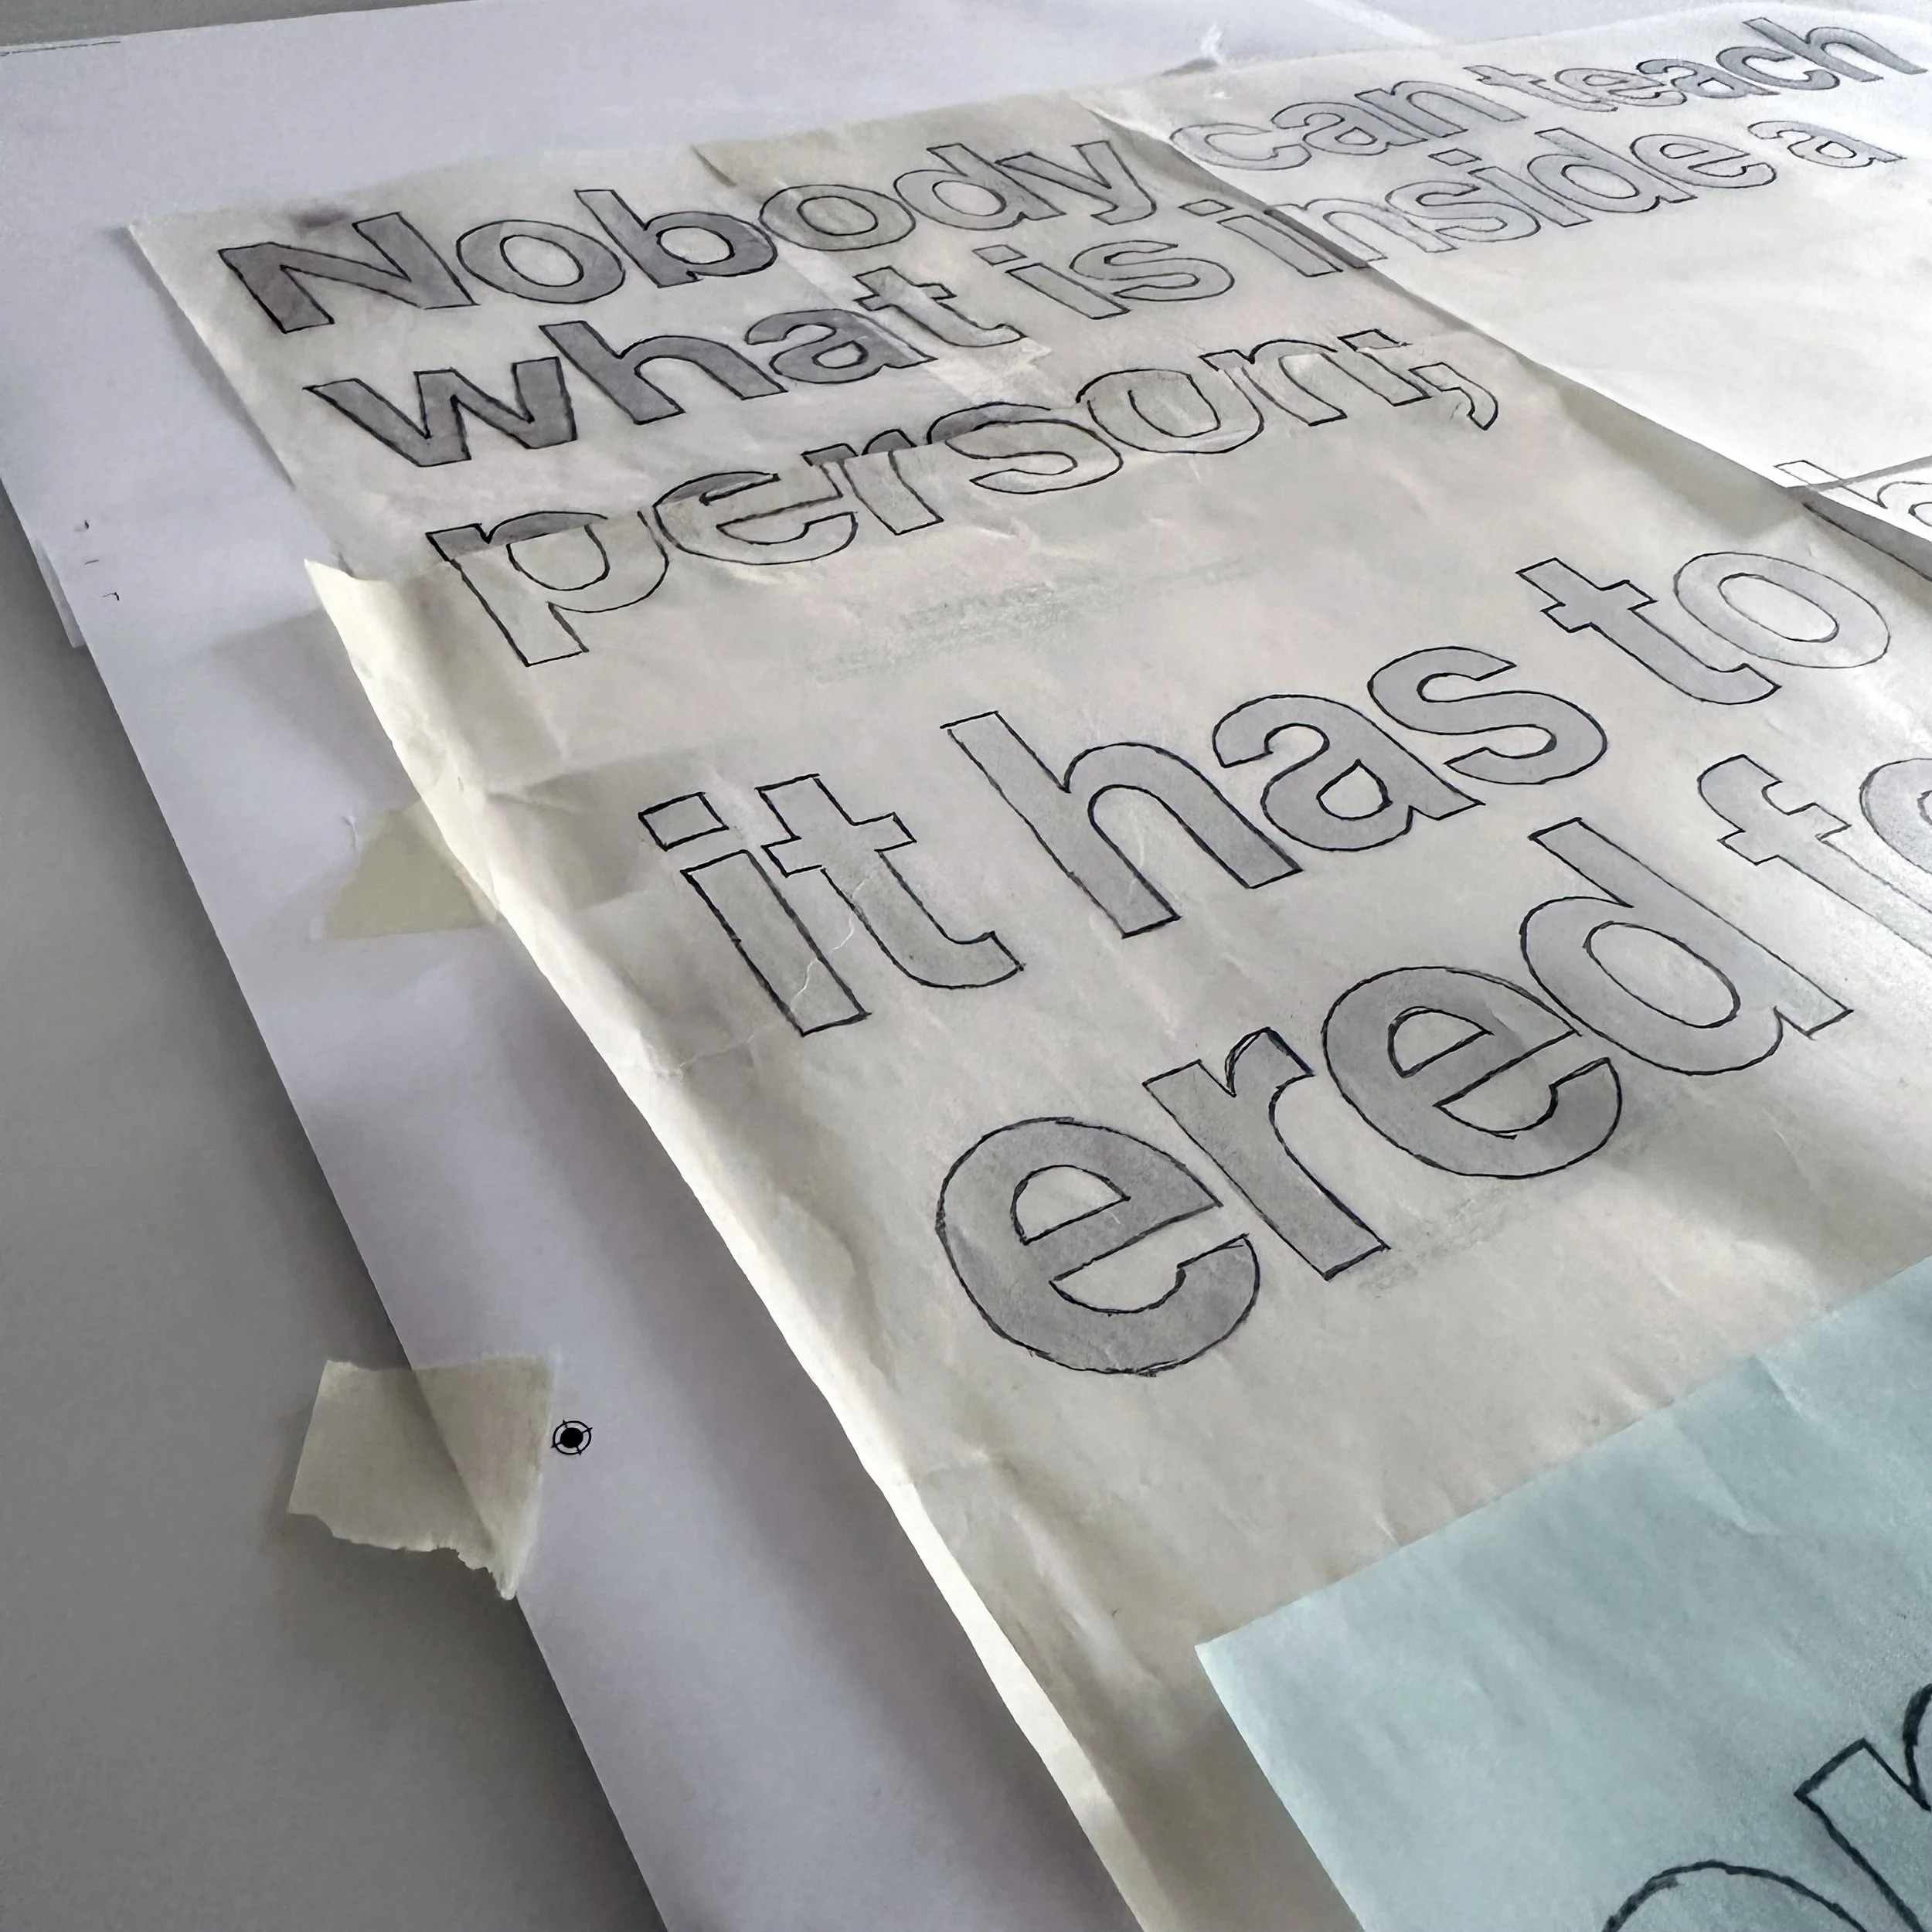 Nobody can teach
what is inside a
person;
it has to
ered